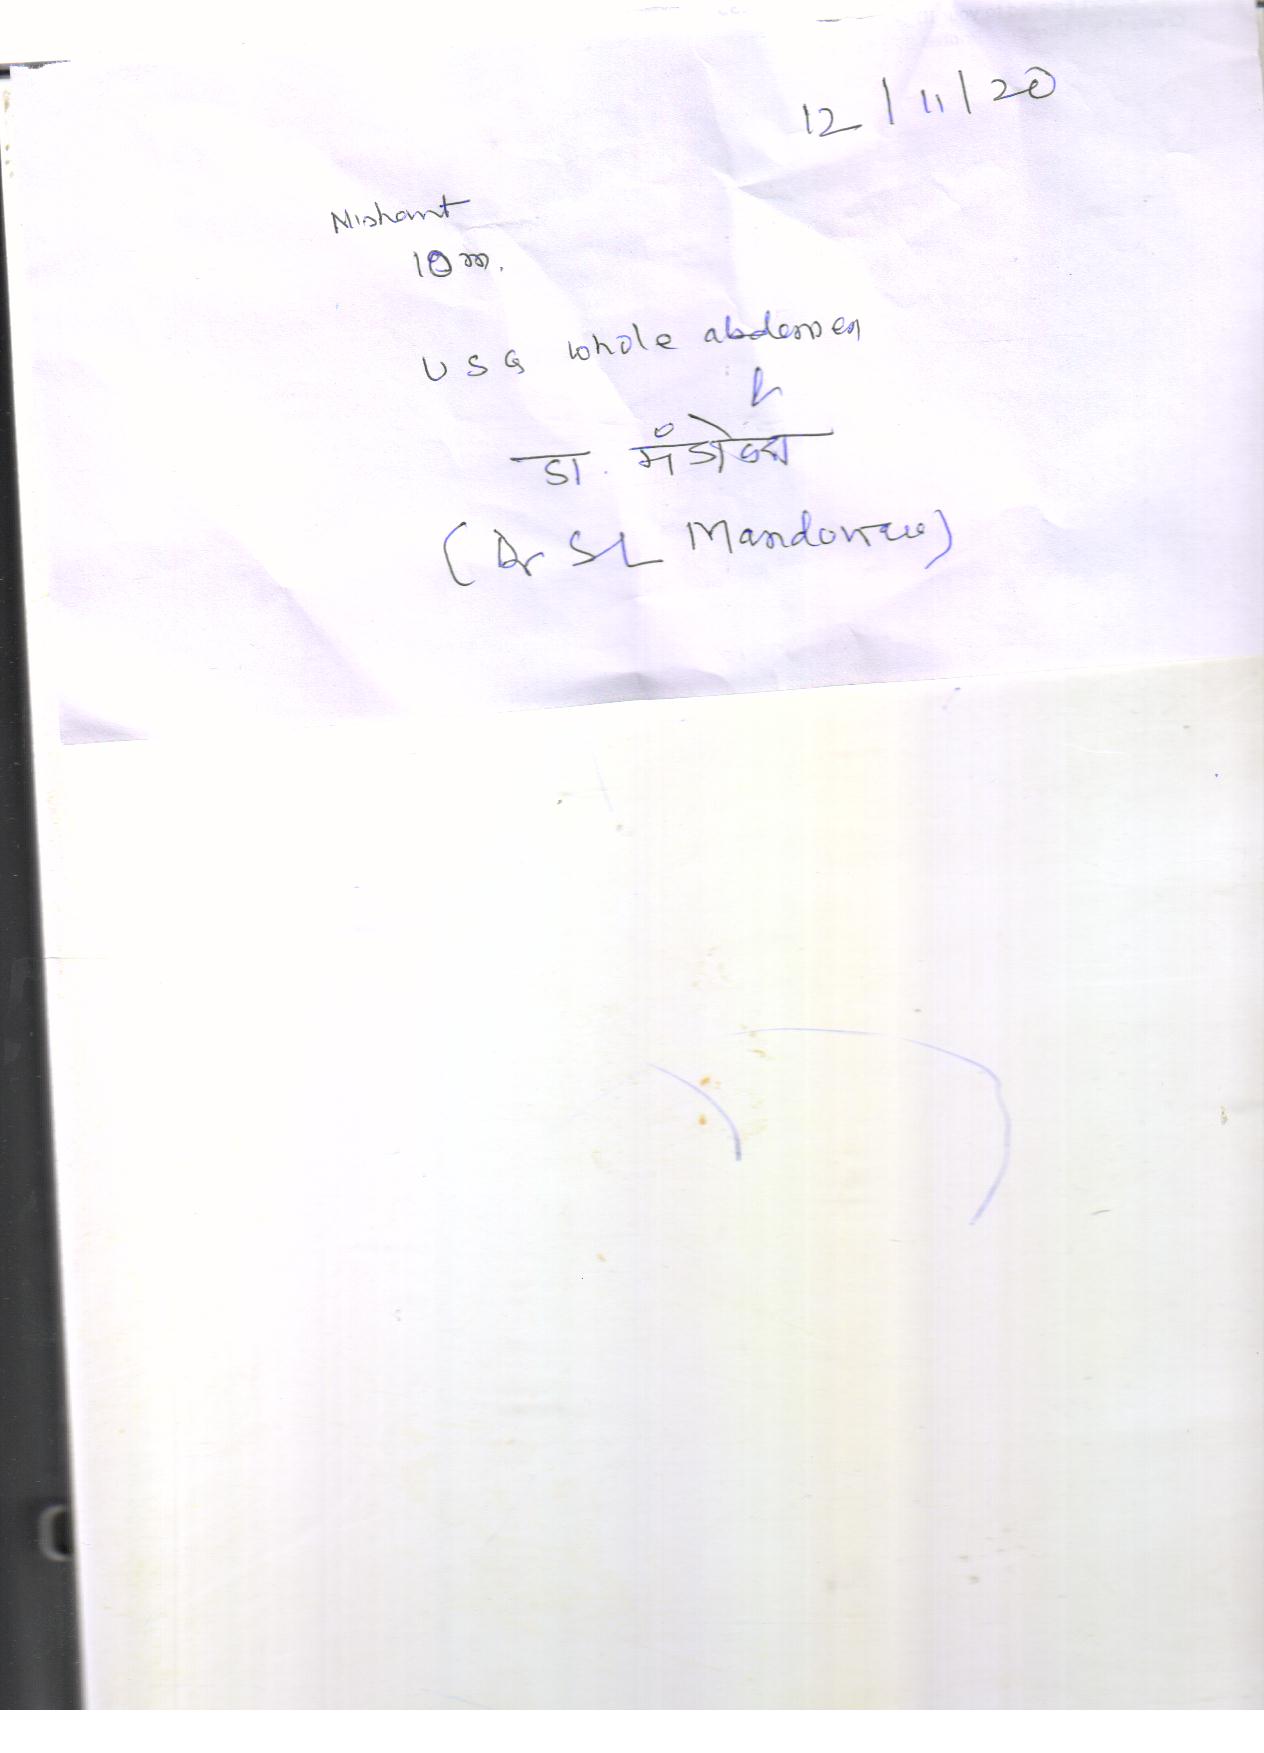 12/11/20
Nishant
10 m.
USG whole abdomen
डा. मंडोवरा
(Dr SL Mandowra)